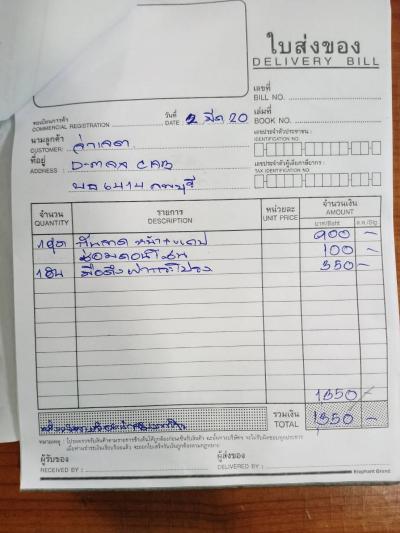 ใบส่งของ
DELIVERY BILL
เลขที่
BILL NO.
ทะเบียนการค้า
COMMERCIAL REGISTRATION
วันที่
DATE 2 มีค 20
เล่มที่
BOOK NO.
นามลูกค้า
CUSTOMER:
เลขประจำตัวประชาชน :
IDENTIFICATION NO.
ที่อยู่
ADDRESS : D-max CAB
เลขประจำตัวผู้เสียภาษีอากร :
TAX IDENTIFICATION NO.
6414 ลพบุรี
จำนวน รายการ หน่วยละ จำนวนเงิน
QUANTITY DESCRIPTION UNIT PRICE AMOUNT
บาท/Baht ส.ต./Stg
1ชุด กันสาด หน้า+ 900 -
ซ่อม 100 -
1อัน มือดึงฝากระโปรง 350 -
1350 -
รวมเงิน
TOTAL 1350 -
ผู้รับของ
RECEIVED BY :
ผู้ส่งของ
DELIVERED BY :
Elephant Brand